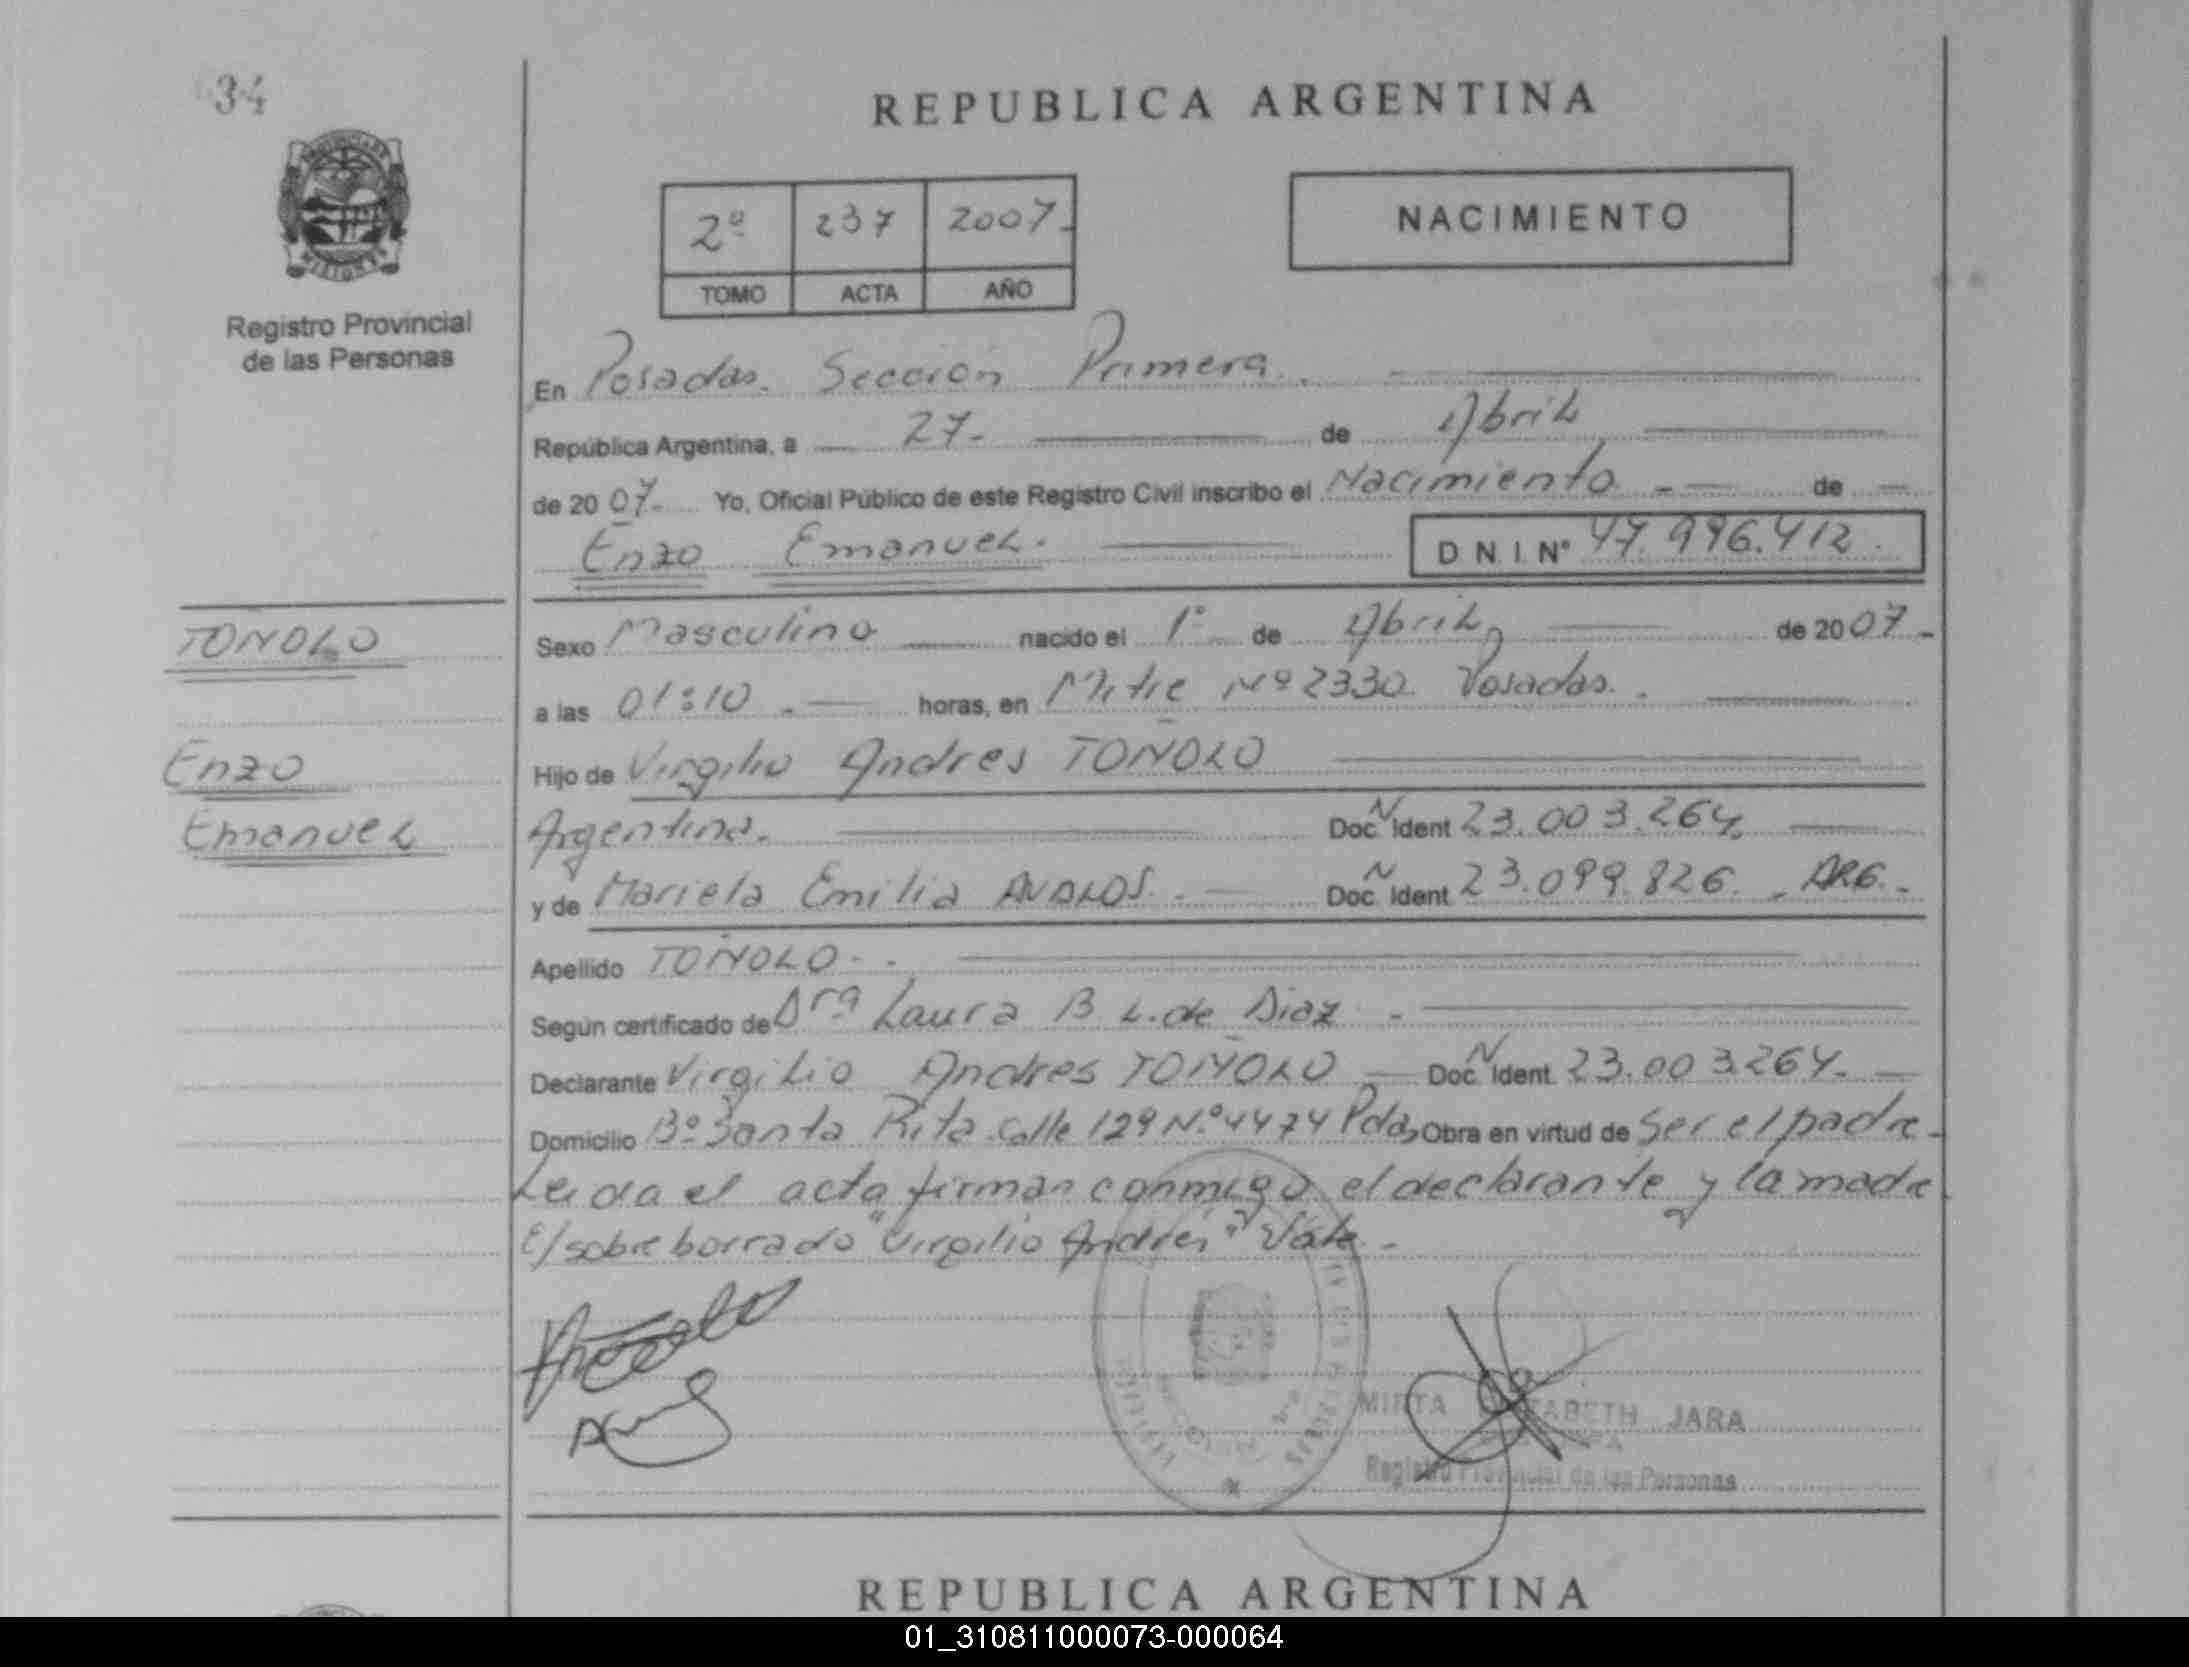 34
REPUBLICA ARGENTINA
2º 237 2007.
TOMO ACTA AÑO
NACIMIENTO
MISIONES
Registro Provincial
de las Personas
En Posadas. Sección Primera.
República Argentina, a 27- de Abril
de 2007. Yo, Oficial Público de este Registro Civil inscribo el Nacimiento - de
Enzo Emanuel. D N.I Nº 47.996.412.
TOÑOLO
Sexo Masculino nacido el 1º de Abril de 2007-
a las 01:10 horas, en Mitre Nº 2330. Posadas.
Enzo
Hijo de Virgilio Andres TOÑOLO
Emanuel
Argentina. Doc N Ident 23.003.264.
y de Mariela Emilia AVALOS. Doc N Ident 23.099.826. - ARG.-
Apellido TOÑOLO.
Según certificado de Dra Laura B L. de Diaz -
Declarante Virgilio Andres TOÑOLO Doc N Ident. 23.003.264.
Domicilio Bº Santa Rita Calle 129 Nº 4474 Pdas Obra en virtud de ser el padre-
Leida el acta firman conmigo el declarante y la madre.
E/sobre borrado "Virgilio Andrés" Vale.-
MIRTA ELIZABETH JARA
Registro Provincial de las Personas
REPUBLICA ARGENTINA
01_310811000073-000064